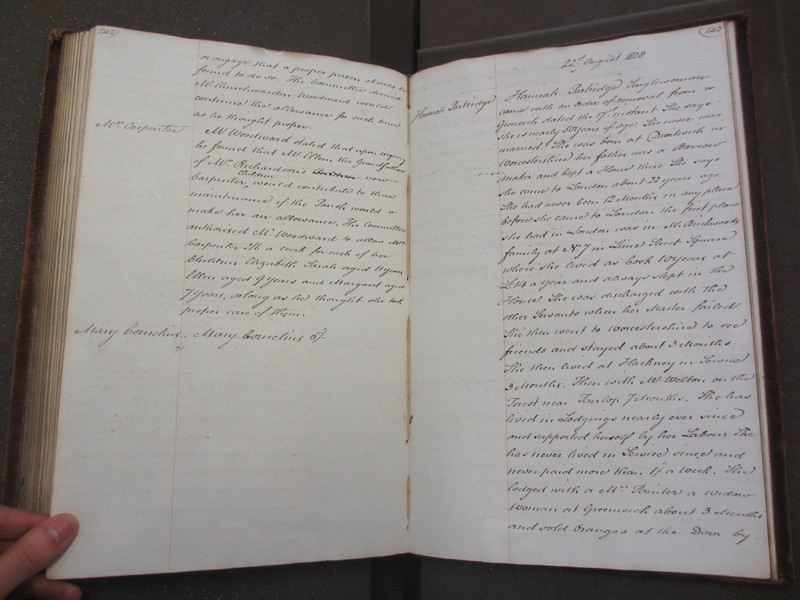 242
or engage that a proper person should be
found to do so. The Committee desired
Mr Churchwarden Woodward would
continue the allowance for such time
as he thought proper.
Mrs Carpenter
Mr Woodward stated that upon inquiry
he found that Mr Ellen the Grandfather
of Mr Richardson's now
Children
Carpenter, would contribute to their
maintenance if the Parish would
make her an allowance. The Committee
authorised Mr Woodward to allow Mrs
Carpenter a week for each of her
Children Elizabeth Sarah aged 11 Years
Ellen aged 9 Years and Margaret aged
7 Years, so long as he thought she took
proper care of them.
Mary Cornelius. Mary Cornelius of
243
22d August 1828
Hannah Partridge
Hannah Partridge Singlewoman
came with an Order of removal from
Greenwich dated the 17th instant She says
she is nearly 50 Years of age. She never was
married. She was born at Droitwich in
Worcestershire her father was a Barrow
maker and kept a House there She says
she came to London about 22 years ago
She had never been 12 Months in any place
before she came to London. the first place
she had in London was in Mr
family at No 7 in Lime Street Square
where she lived as Cook 10 Years at
£14 a year and always slept in the
House. She was discharged with the
other Servants when her Master failed
She then went to Worcestershire to see
friends and stayed about 3 Months
She then lived at Hackney in Service
3 Months. Then with Mr Welton on the
Forest near Fairlop 7 Months. She has
lived in Lodgings nearly ever since
and supported herself by her Labour She
has never lived in Service since and
never paid more than a week. She
lodged with a Mrs Painter a widow
Woman at Greenwich about 3 Months
and sold Oranges at the Door by